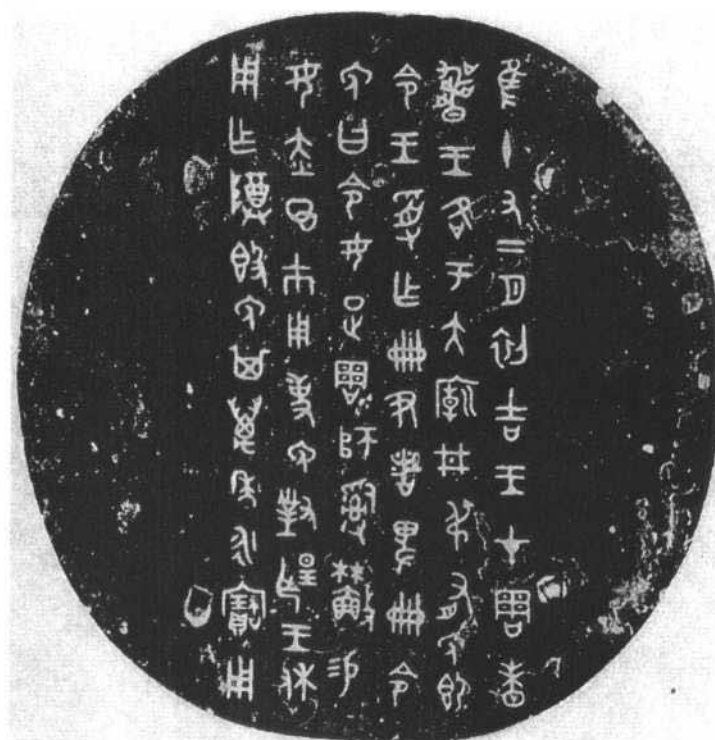 隹十又二月初吉王才周昧
爽王各于大廟井叔有免即
令王受乍冊尹者卑冊令
免曰令女疋周師𤔲易
女赤巿用事免對揚王休
用乍尊𣪘免其萬年永寶用